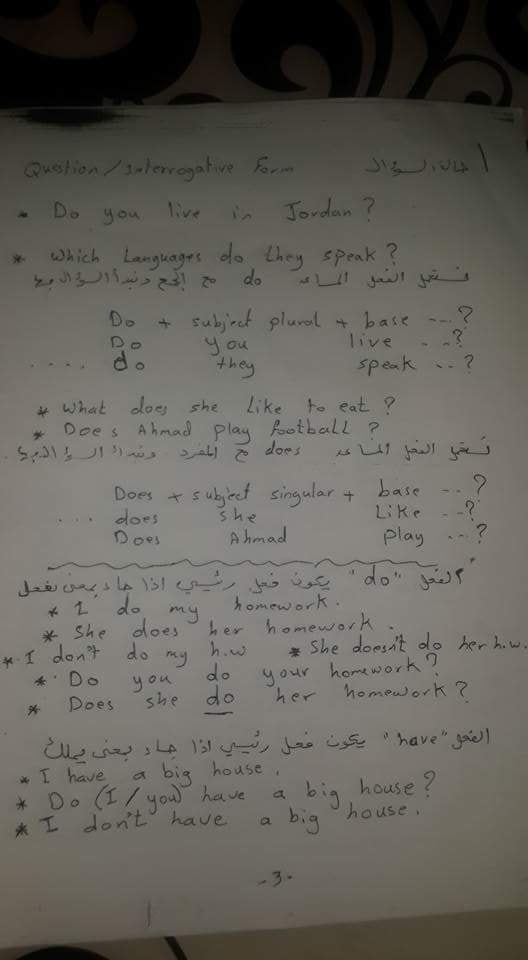 Question/Interrogative Form حالة السؤال
* Do you live in Jordan?
* Which Languages do they speak?
نستعمل الفعل المساعد do مع الجمع ونبدأ السؤال به
Do + subject plural + base ---?
Do you live - - ?
.... do they speak -- ?
* What does she like to eat?
* Does Ahmad play football?
نستعمل الفعل المساعد does مع المفرد ونبدأ السؤال به
Does + subject singular + base --- ?
... does she Like ---?
Does Ahmad play -- ?
الفعل "do" يكون فعل رئيسي اذا جاء بمعنى يفعل
* I do my homework.
* She does her homework.
* I don't do my h.w * She doesn't do her h.w.
* Do you do your homework?
* Does she do her homework?
الفعل "have" يكون فعل رئيسي اذا جاء بمعنى يملك
* I have a big house.
* Do (I/you) have a big house?
* I don't have a big house.
-3-